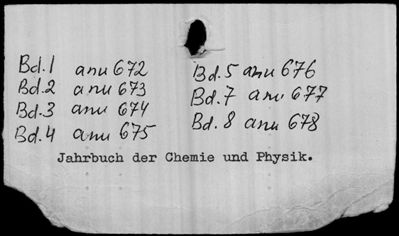 Bd.1 anu 672
Bd.2 anu 673
Bd.3 anu 674
Bd.4 anu 675
Bd.5 anu 676
Bd.7 anu 677
Bd.8 anu 678
Jahrbuch der Chemie und Physik.